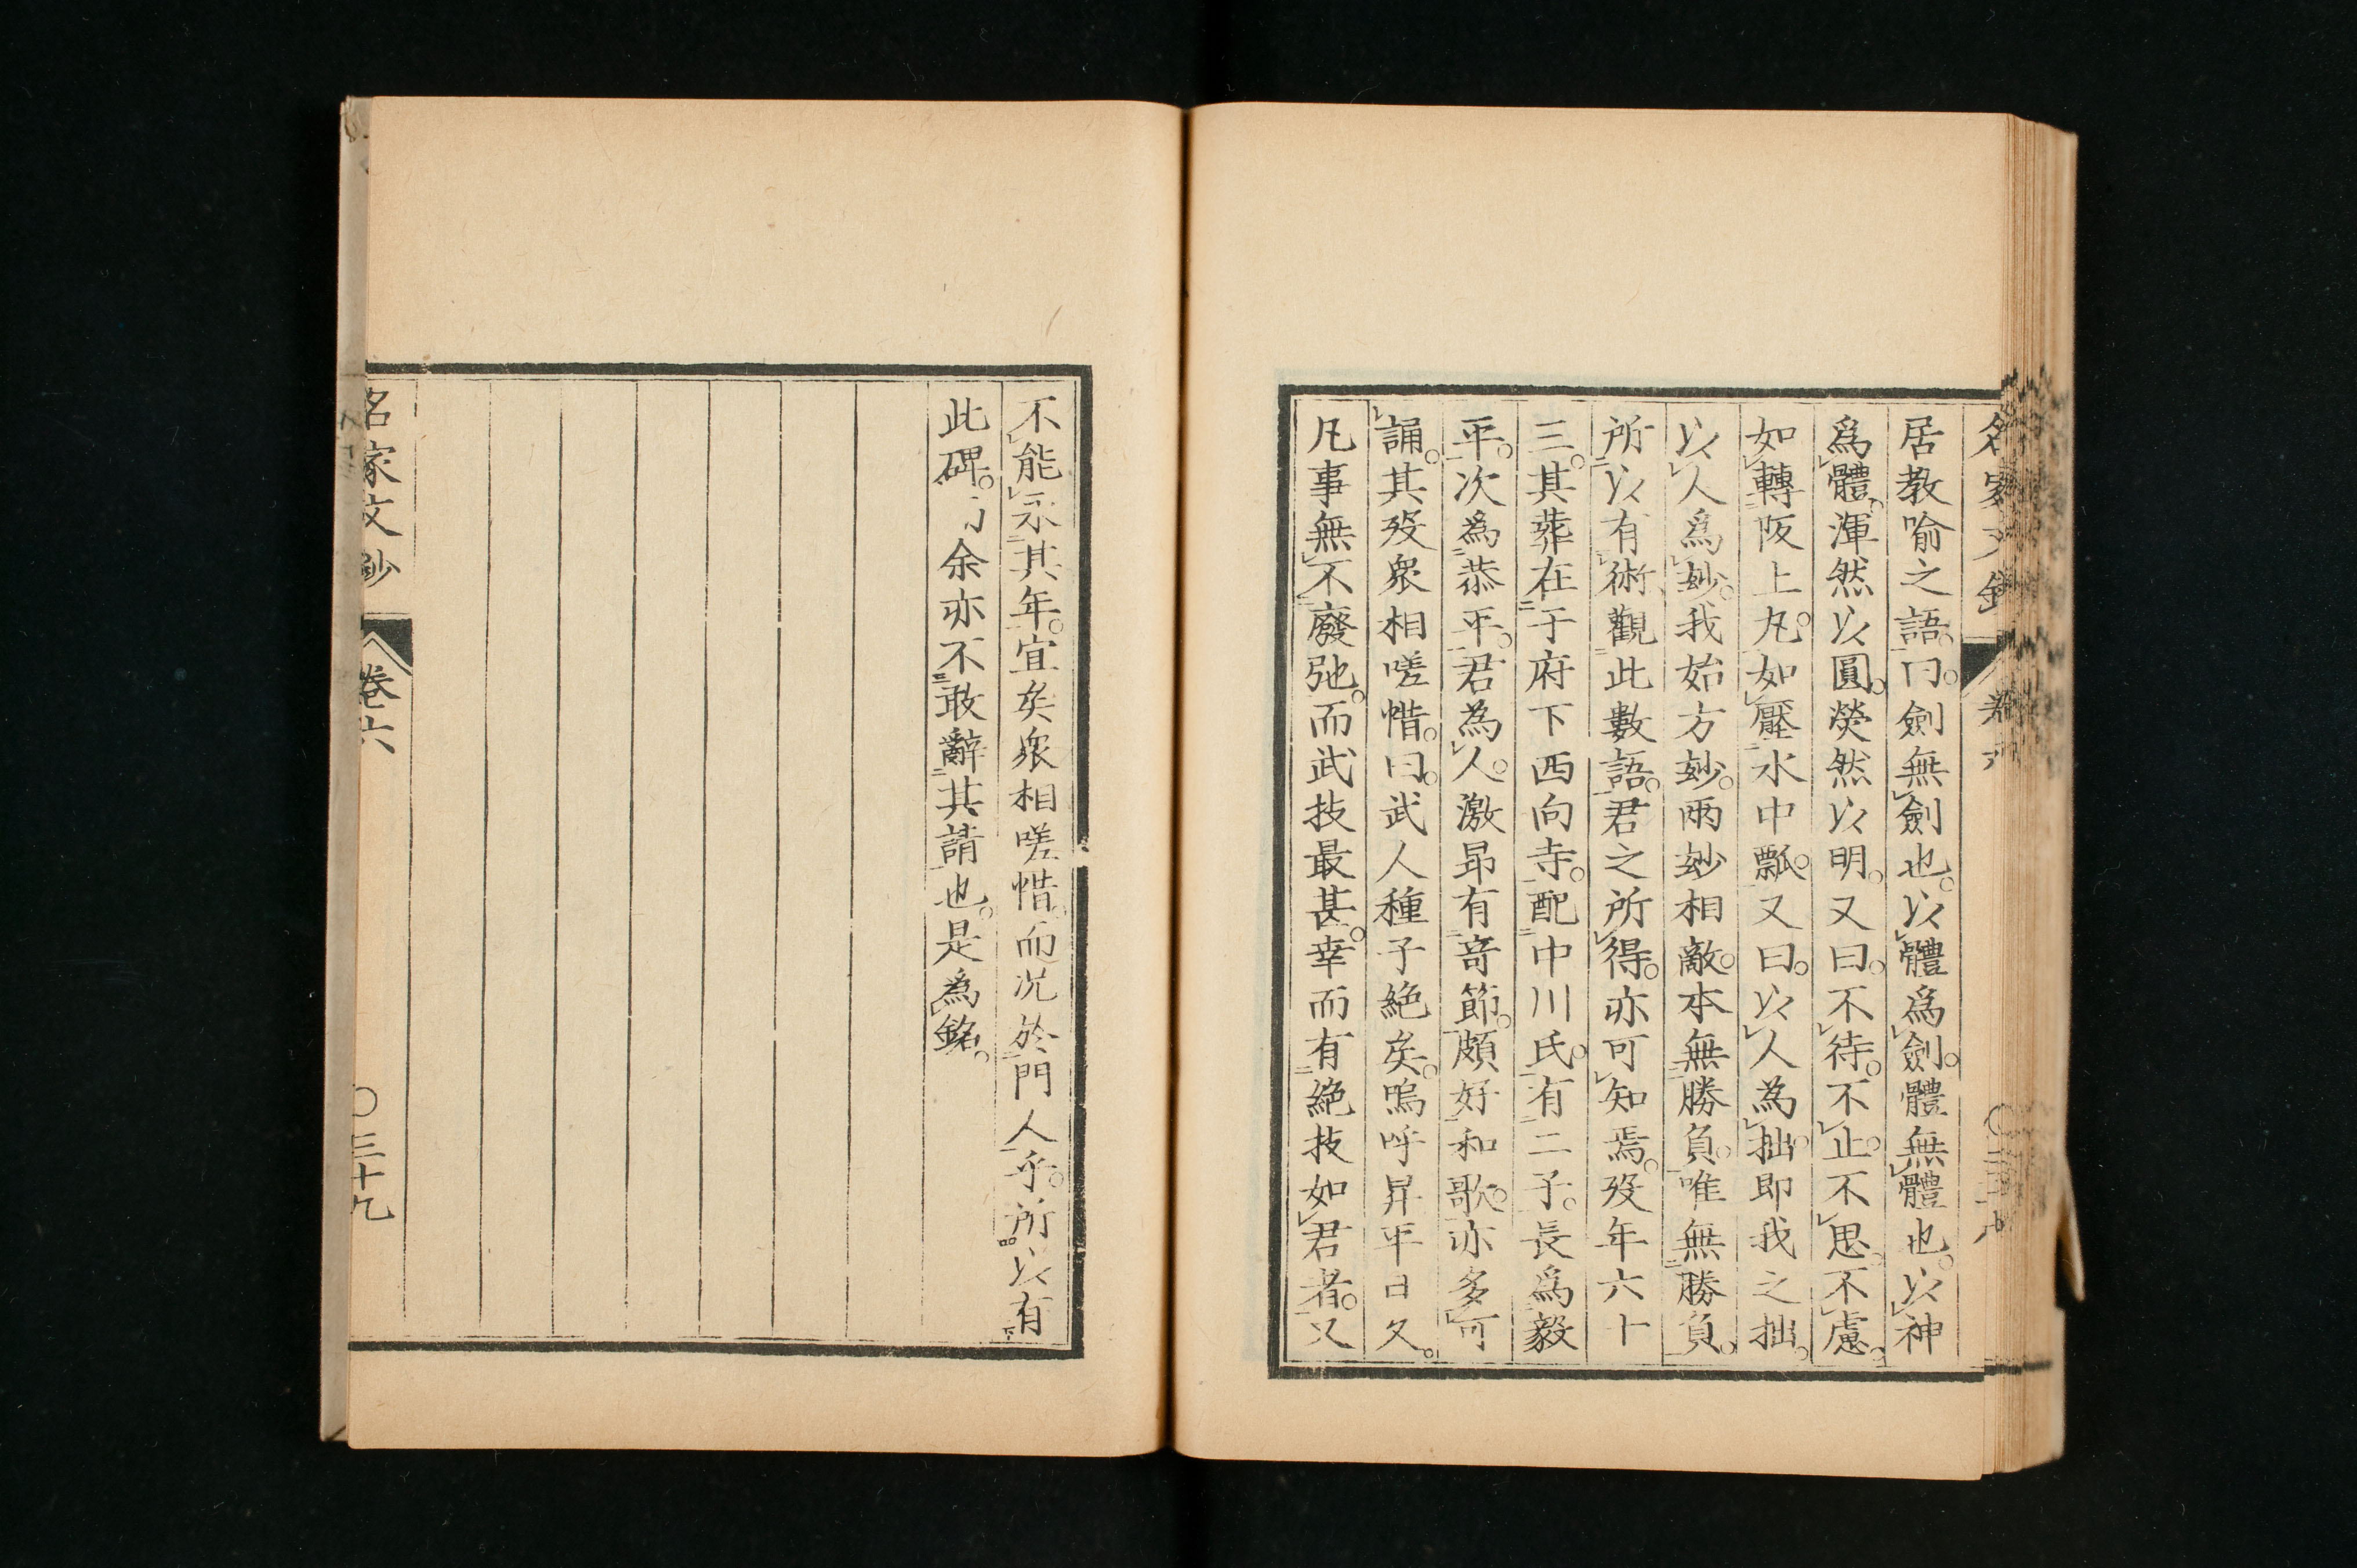 居教喻之語。曰。劍無劍也。以體爲劍。體無體也。以神
爲體。渾然以圓。熒然以明。又曰。不待。不止。不思。不慮。
如轉阪上凡。如壓水中瓢。又曰。以人為拙。即我之拙。
以人爲妙。我始方妙。兩妙相敵。本無勝負。唯無勝負。
所以有術。觀此數語。君之所得。亦可知焉。歿年六十
三。其葬在于府下西向寺。配中川氏。有二子。長爲毅
平。次為恭平。君為人。激昻有竒節。頗好和歌。亦多可
誦。其歿衆相嗟惜。曰。武人種子絶矣。嗚呼昇平日久。
凡事無不廢弛。而武技最甚。幸而有絶技如君者。又
不能永其年。宜矣衆相嗟惜。而况於門人乎。所以有
此碑。余亦不敢辭其請也。是為銘。
名家文鈔
卷六
〇三十九